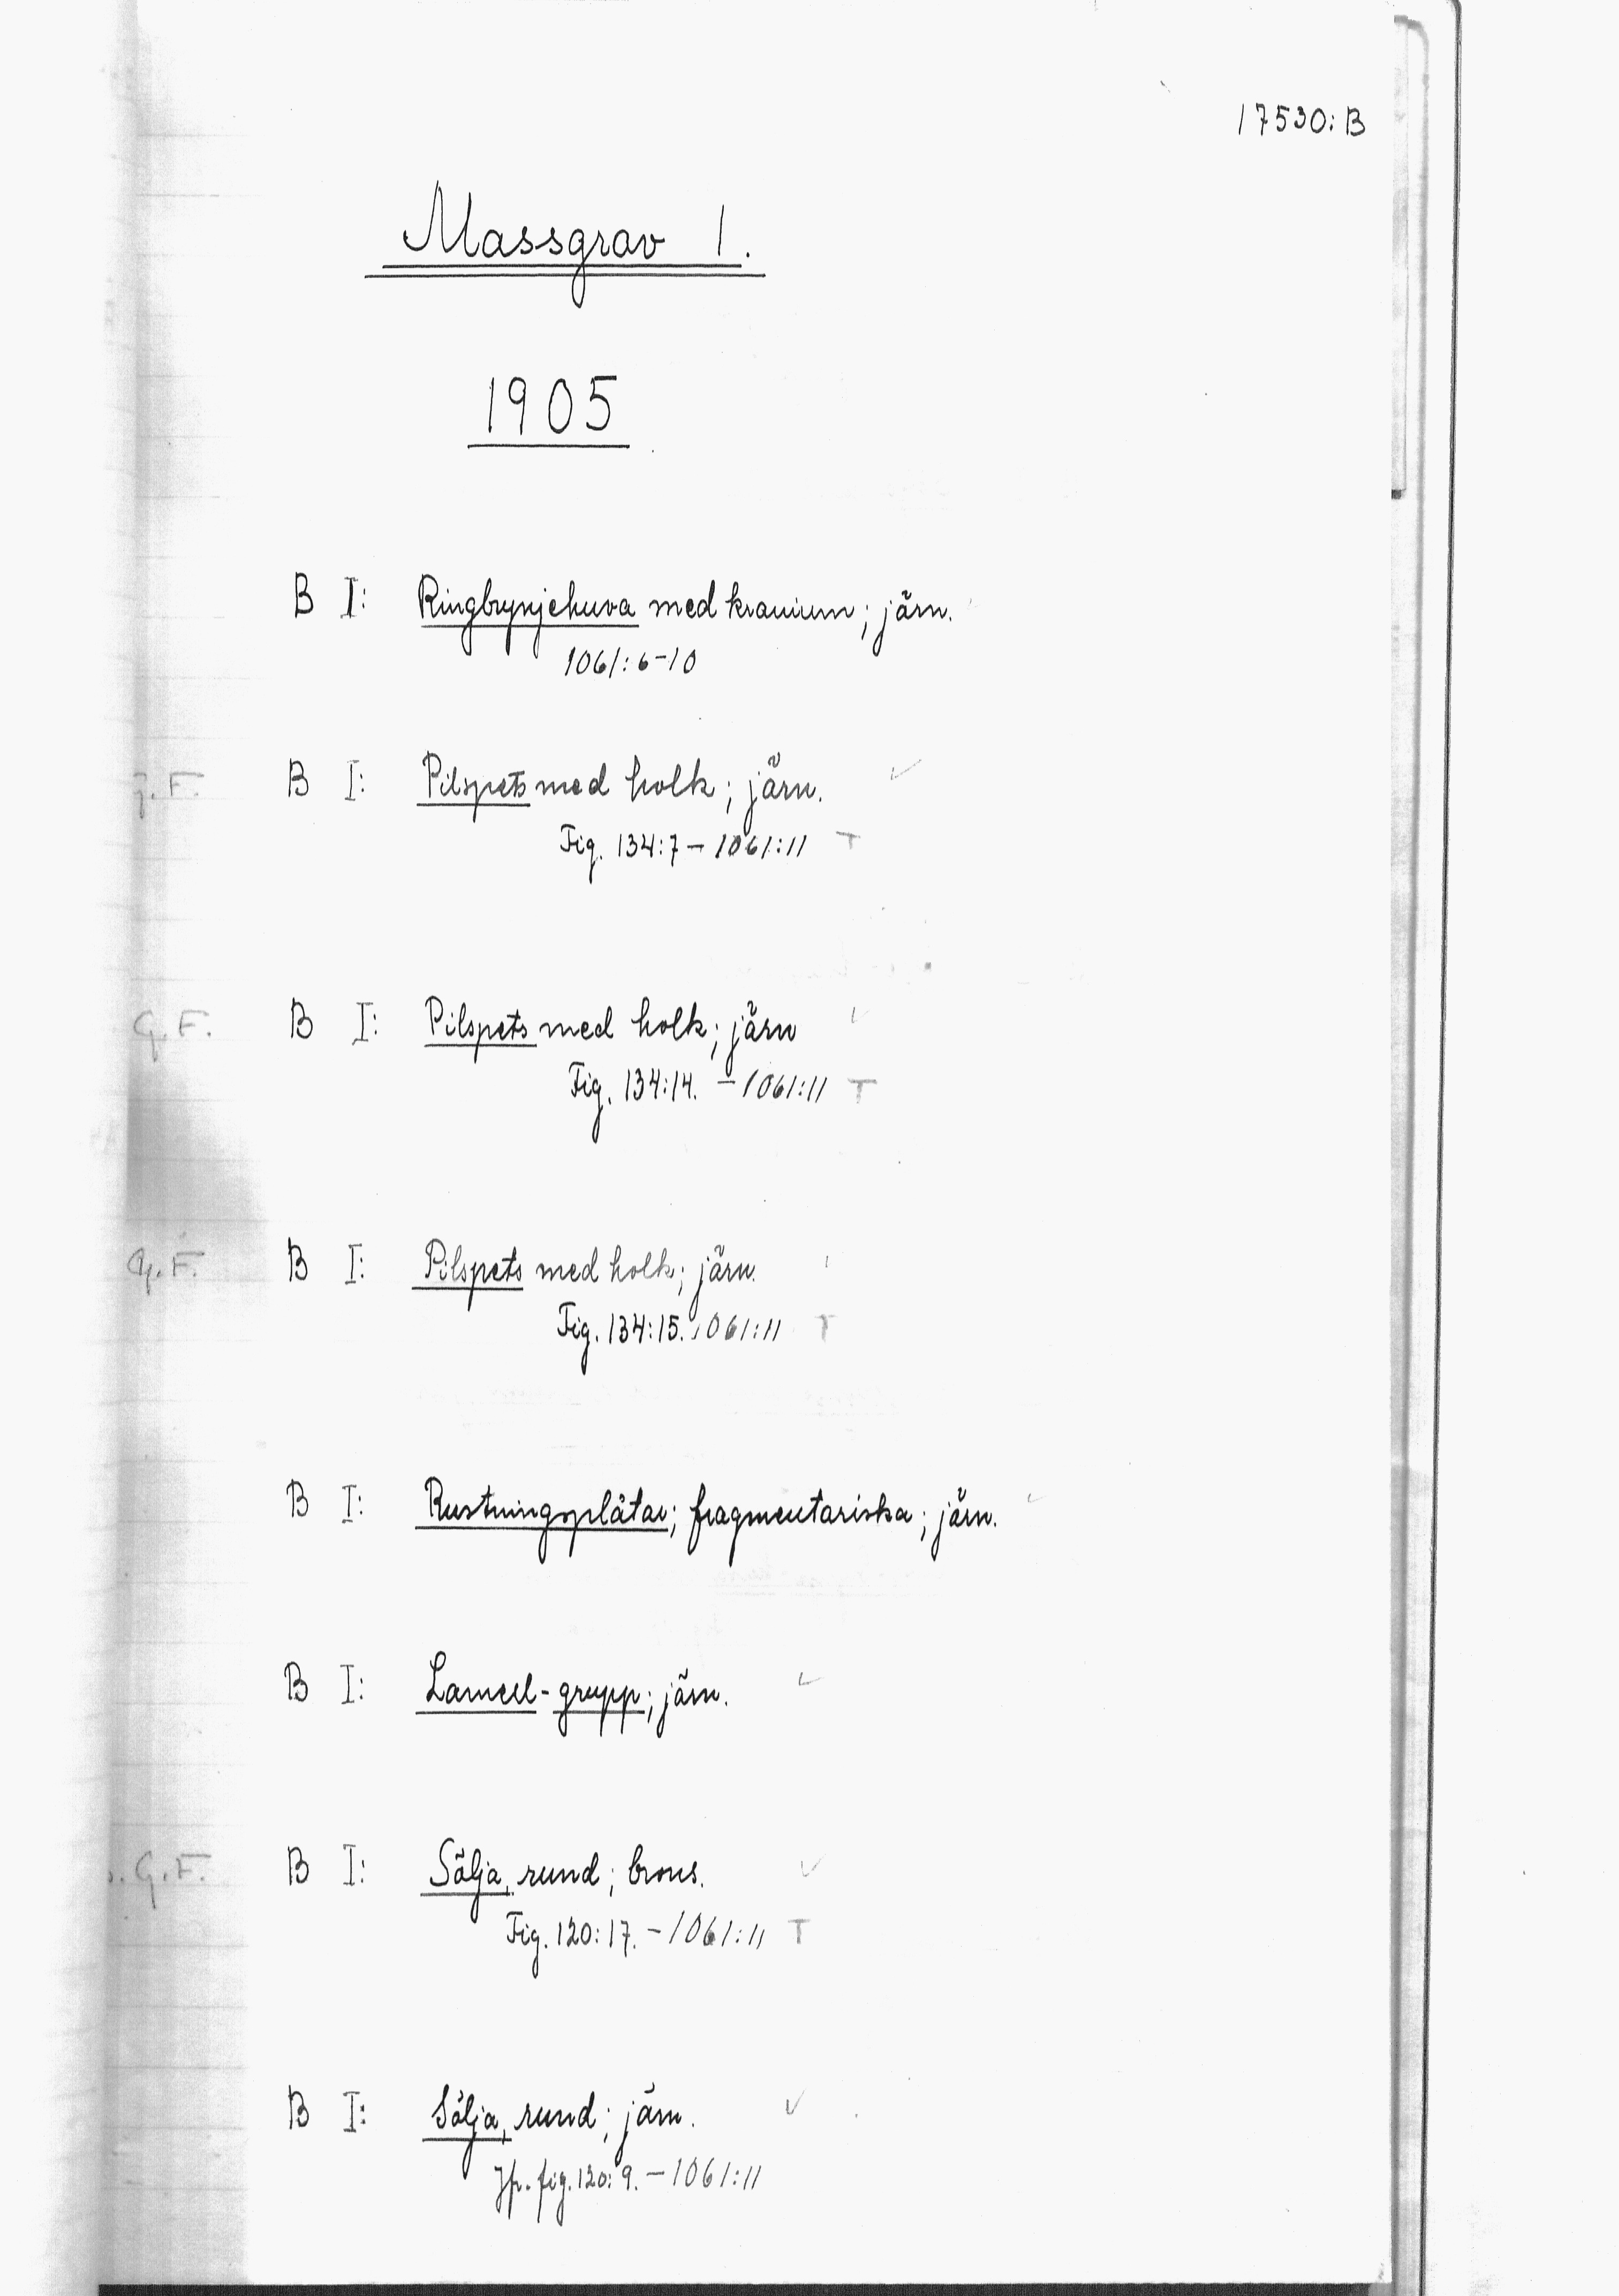 17530:B
Massgrav 1.
1905
B I: Ringbrynjehuva med kranium; järn.
1061:6-10
G.F. B I: Pilspets med holk; järn. ✓
Fig. 134:7 - 1061:11 T
G.F. B I: Pilspets med holk; järn ✓
Fig. 134:14. - 1061:11 T
G.F. B I: Pilspets med holk; järn.
Fig. 134:15. 1061:11 T
B I: Rustningsplåtar; fragmentariska; järn. ✓
B I: Lamell-grupp; järn. ✓
G.F. B I: Sölja, rund; brons. ✓
Fig. 120:17. - 1061:11 T
B I: Sölja, rund; järn. ✓
Jfr. fig. 120:9. - 1061:11